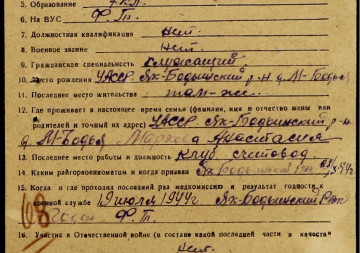 5. Образование 7 кл.
6. На ВУС Ф. Т.
7. Должностная квалификация нет.
8. Военное звание нет.
9. Гражданская специальность служащий
10. Место рождения УАССР. Як-Бодьинский р-н д. М-Бодья
11. Последнее место жительства там-же.
12. Где проживает в настоящее время семья (фамилия, имя и отчество жены или
родителей и точный их адрес) УАССР. Як-Бодьинский р-н
д. М-Бодья Анастасия
13. Последнее место работы и должность Клуб счетовод.
14. Каким райгорвоенкоматом и когда призван Як-Бодьинский РВК
15. Когда и где проходил последний раз медкомиссию и результат годности к
военной службе 19 июля 1944г Як-Бодьинский РВК
годен Ф. Т.
16. Участие в Отечественной войне (в составе какой последней части в качестве
нет.